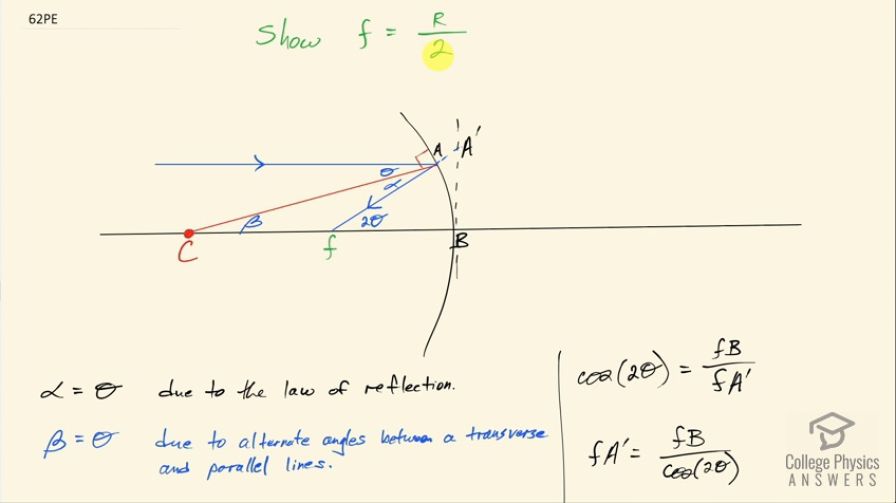 62PE
Show f = R/2
A A'
θ
α
β 2θ
C f B
α = θ due to the law of reflection.
β = θ due to alternate angles between a transverse
and parallel lines.
cos(2θ) = fB/fA'
fA' = fB/cos(2θ)
College Physics
ANSWERS